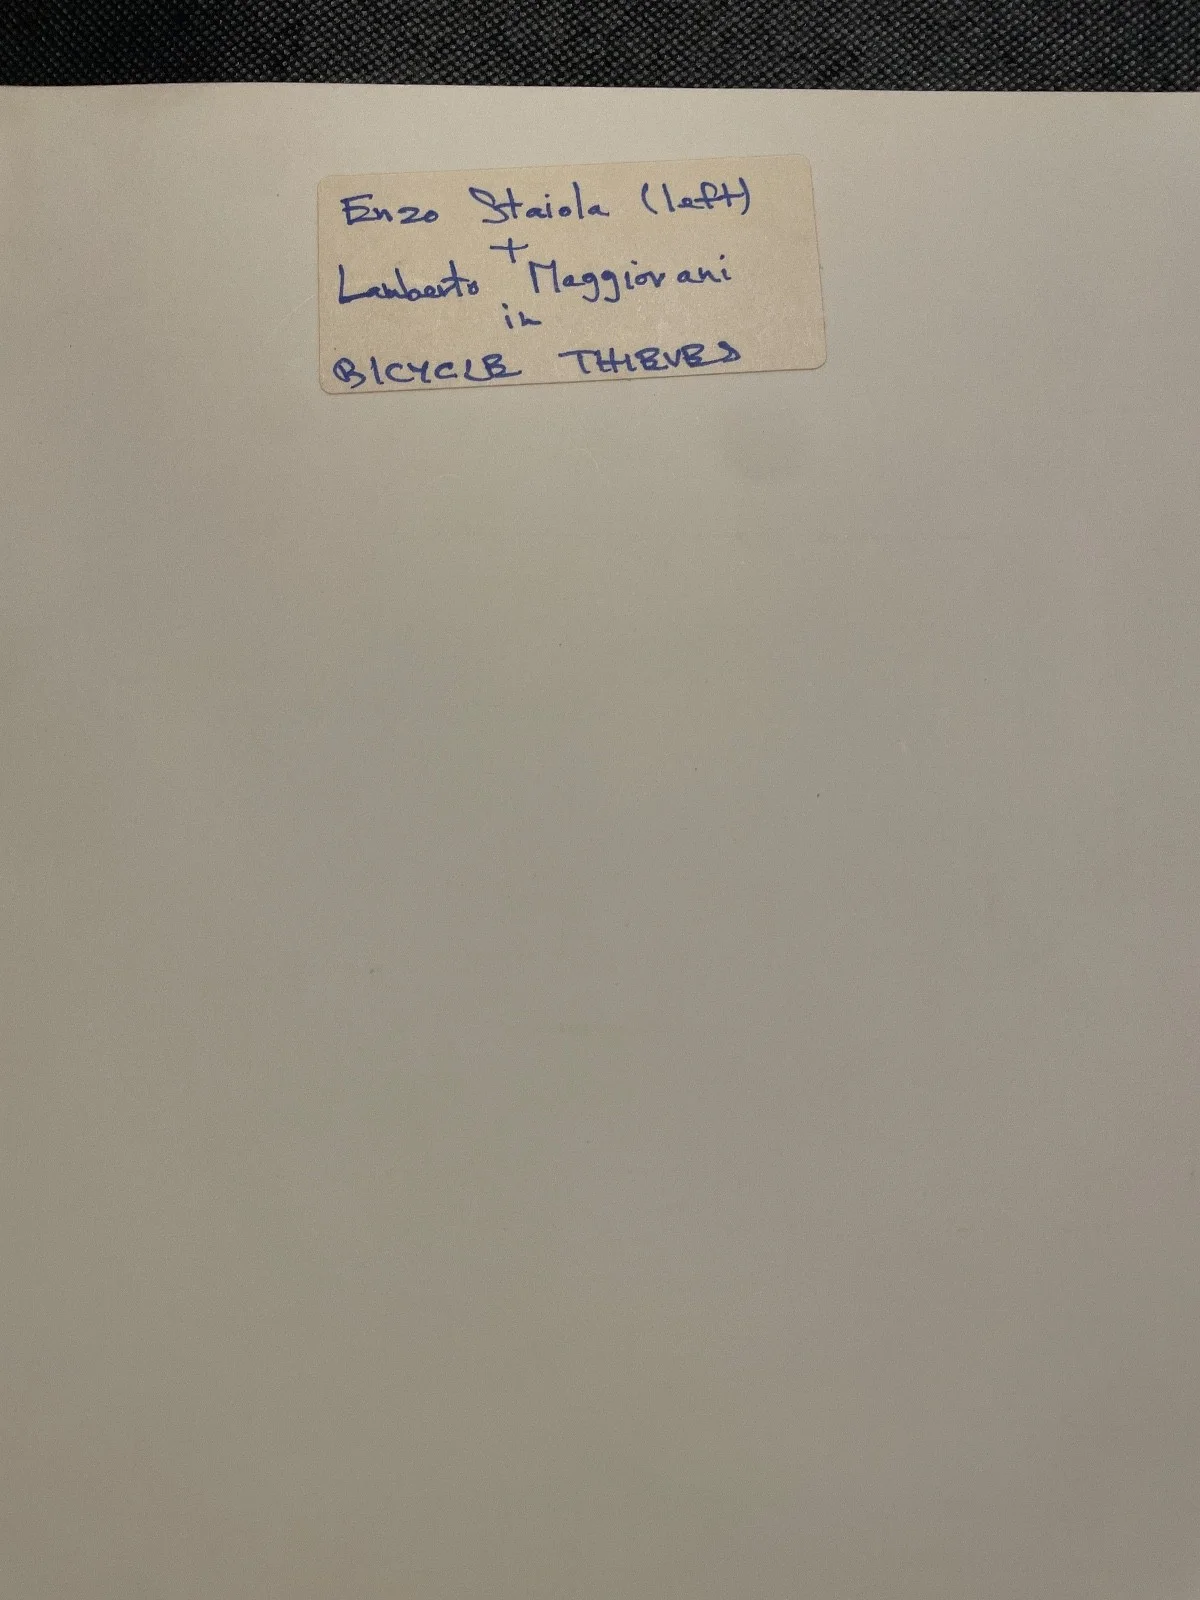 Enzo Staiola (left)
+
Lamberto Maggiorani
in
BICYCLE THIEVES